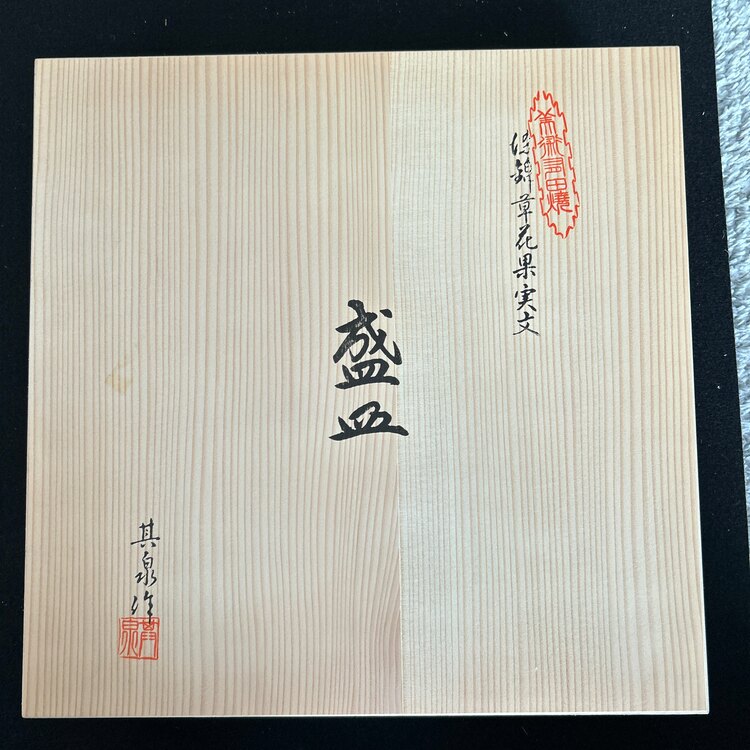 美術有田焼
染錦草花果実文
盛皿
其泉作